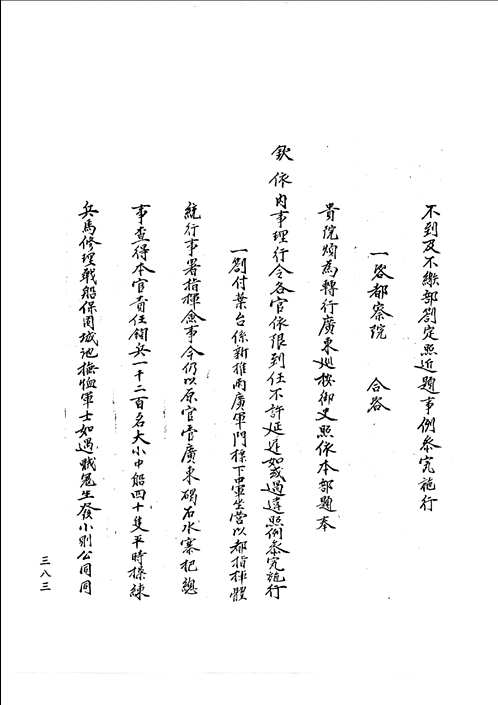 不到及不繳部劄定照近題事例叅究施行
一咨都察院 合咨
貴院煩為轉行廣東廵按御史照依本部題奉
欽依內事理行令各官依限到任不許延遲如或過違照例叅究施行
一劄付葉台係新推兩廣軍門標下中軍坐營以都指揮體
統行事署指揮僉事今仍以原官管廣東碣石水寨把總
事查得本官責任領兵一千二百名大小中船四十隻平時操練
兵馬修理戰船保固城池撫恤軍士如遇賊寇生發小則公同同
三八三